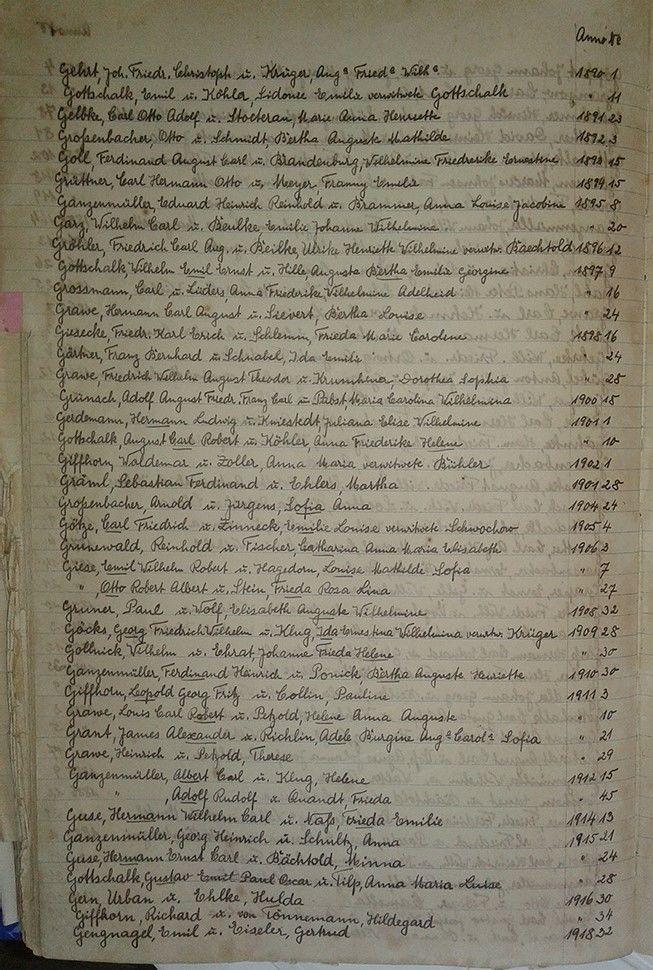 Anno №
Gehrt, Joh. Friedr. Christoph u. Krüger, Augᵃ Friedᵃ Wilhᵃ 1890 1
Gottschalk, Emil u. Köhler, Sidonie Emilie verwitwete Gottschalk " 11
Gelbke, Carl Otto Adolf u. Marie Anna Henriette 1891 23
Großenbacher, Otto u. Schmidt, Bertha Auguste Mathilde 1892 3
Goll, Ferdinand August Carl u. Brandenburg, Wilhelmine Friederike Ernestine 1893 15
Grüttner, Carl Hermann Otto u. Meyer, Franny Emilie 1894 15
Ganzenmüller Eduard Heinrich Reinhold u. Brammer, Anna Louise Jacobine 1895 8
Garz, Wilhelm Carl u. Beulke, Emilie Johanne Wilhelmine " 20
Gröhler, Friedrich Carl Aug. u. Beilke, Ulrike Henriette Wilhelmine verwitw. Baechtold 1896 12
Gottschalk, Wilhelm Emil Ernst u. Hille Augusta Bertha Emilie Georgine 1897 9
Grossmann, Carl u. Lüders, Anna Friederike Wilhelmine Adelheid " 16
Grawe, Hermann Carl August u. Sievert, Bertha Louise " 24
Giesecke, Friedr. Karl Erich u. Schlemm, Frieda Marie Caroline 1898 16
Gärtner, Franz Bernhard u. Schnabel, Ida Emilie " 24
Grawe, Friedrich Wilhelm August Theodor u. Dorothea Sophia " 28
Grünsch, Adolf August Friedr. Franz Carl u. Pabst, Maria Carolina Wilhelmina 1900 18
Gerdemann, Hermann Ludwig u. Kniestedt, Juliana Elise Wilhelmine 1901 1
Gottschalk, August Carl Robert u. Köhler, Anna Friederike Helene " 10
Giffhorn, Waldemar u. Zoller, Anna Maria verwitwete Bühler 1902 1
Graml, Sebastian Ferdinand u. Ehlers, Martha 1901 28
Großenbacher, Arnold u. Jürgens, Sofia Anna 1904 24
Götze, Carl Friedrich u. Zinneck, Emilie Louise verwitwete Schwochow 1905 4
Grünewald, Reinhold u. Fischer, Catharina Anna Maria Elisabeth 1906 2
Giese, Emil Wilhelm Robert u. Hagedorn, Louise Mathilde Sofia " 7
" , Otto Robert Albert u. Stein, Frieda Rosa Lina " 27
Gruner, Paul u. Wolf, Elisabeth Auguste Wilhelmine 1908 32
Göcks, Georg Friedrich Wilhelm u. Klug, Ida Ernestina Wilhelmina verwitw. Krüger 1909 28
Gollnick, Wilhelm u. Ehrat, Johanne Frieda Helene " 30
Ganzenmüller, Ferdinand Heinrich u. Ponick, Bertha Auguste Henriette 1910 30
Giffhorn, Leopold Georg Fritz u. Collin, Pauline 1911 3
Grawe, Louis Carl Robert u. Petzold, Helene Anna Auguste " 10
Grant, James Alexander u. Richlin, Adele Burgine Augᵃ Carolᵃ Sofia " 21
Grawe, Heinrich u. Petzold, Therese " 29
Ganzenmüller, Albert Carl u. Klug, Helene 1912 15
" , Adolf Rudolf u. Quandt, Frieda " 45
Guse, Hermann Wilhelm Carl u. Naß, Frieda Emilie 1914 13
Ganzenmüller, Georg Heinrich u. Schultz, Anna 1915 21
Guse, Hermann Ernst Carl u. Bächtold, Minna " 24
Gottschalk, Gustav Emil Paul Oscar u. Tilp, Anna Maria Luise " 28
Gern, Urban u. Ehlke, Hulda 1916 30
Giffhorn, Richard u. von Tönnemann, Hildegard " 34
Gengnagel, Emil u. Eiseler, Gertrud 1918 32